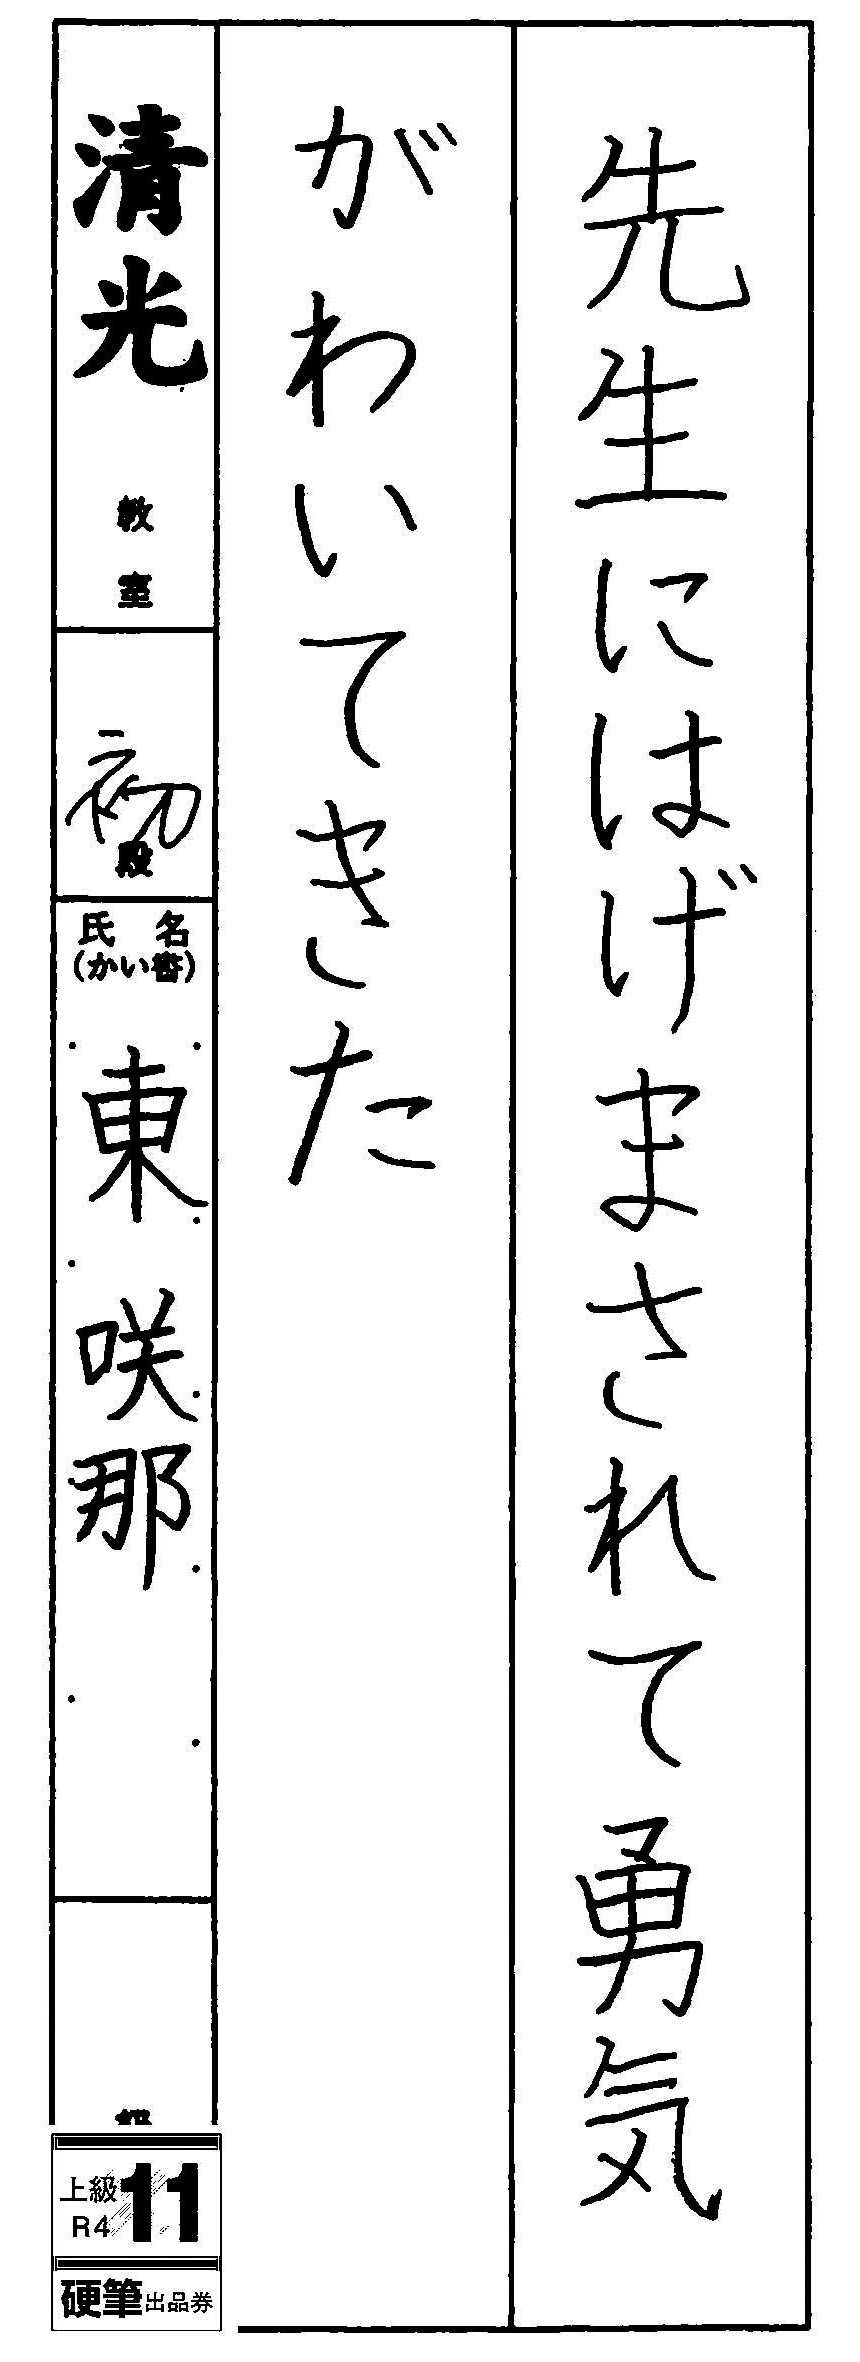 先生にはげまされて勇気
がわいてきた
清光教室
初段
氏名
(かい書)
東咲那
上級
R4
11
硬筆出品券